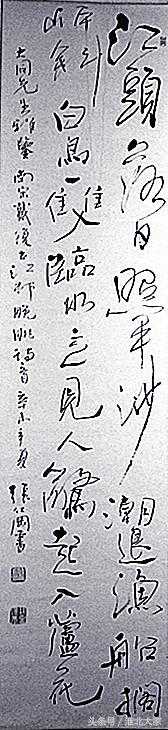 江頭落日照平沙潮退漁船擱
岸斜白鳥一雙臨水立見人驚起入蘆花
大同先生雅鑒南宋戴復古江村晚眺辛未年夏張書
头条号/淮北大